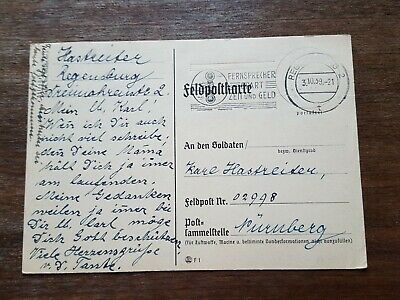 Hastreiter
Regensburg
Dreimohrenstr 2.
Mein lb. Karl!
Wenn ich Dir auch
nicht viel schreibe,
den Deine Mama
hält Dich ja imer
am laufenden.
Meine Gedanken
weilen ja imer bei
Dir lb. Karl möge
Dich Gott beschützen
Viele Herzensgrüße
v. D. Tante.
FERNSPRECHER
SPART
ZEIT UND GELD
REGENSBURG 2
3.10.39.-21
Feldpostkarte
portofrei!
An den Soldaten/
bezw. Dienstgrad
Karl Hastreiter,
Feldpost Nr. 02998
Post-
sammelstelle Nürnberg
(für Luftwaffe, Marine u. bestimmte Sonderformationen nicht auszufüllen)
F 1